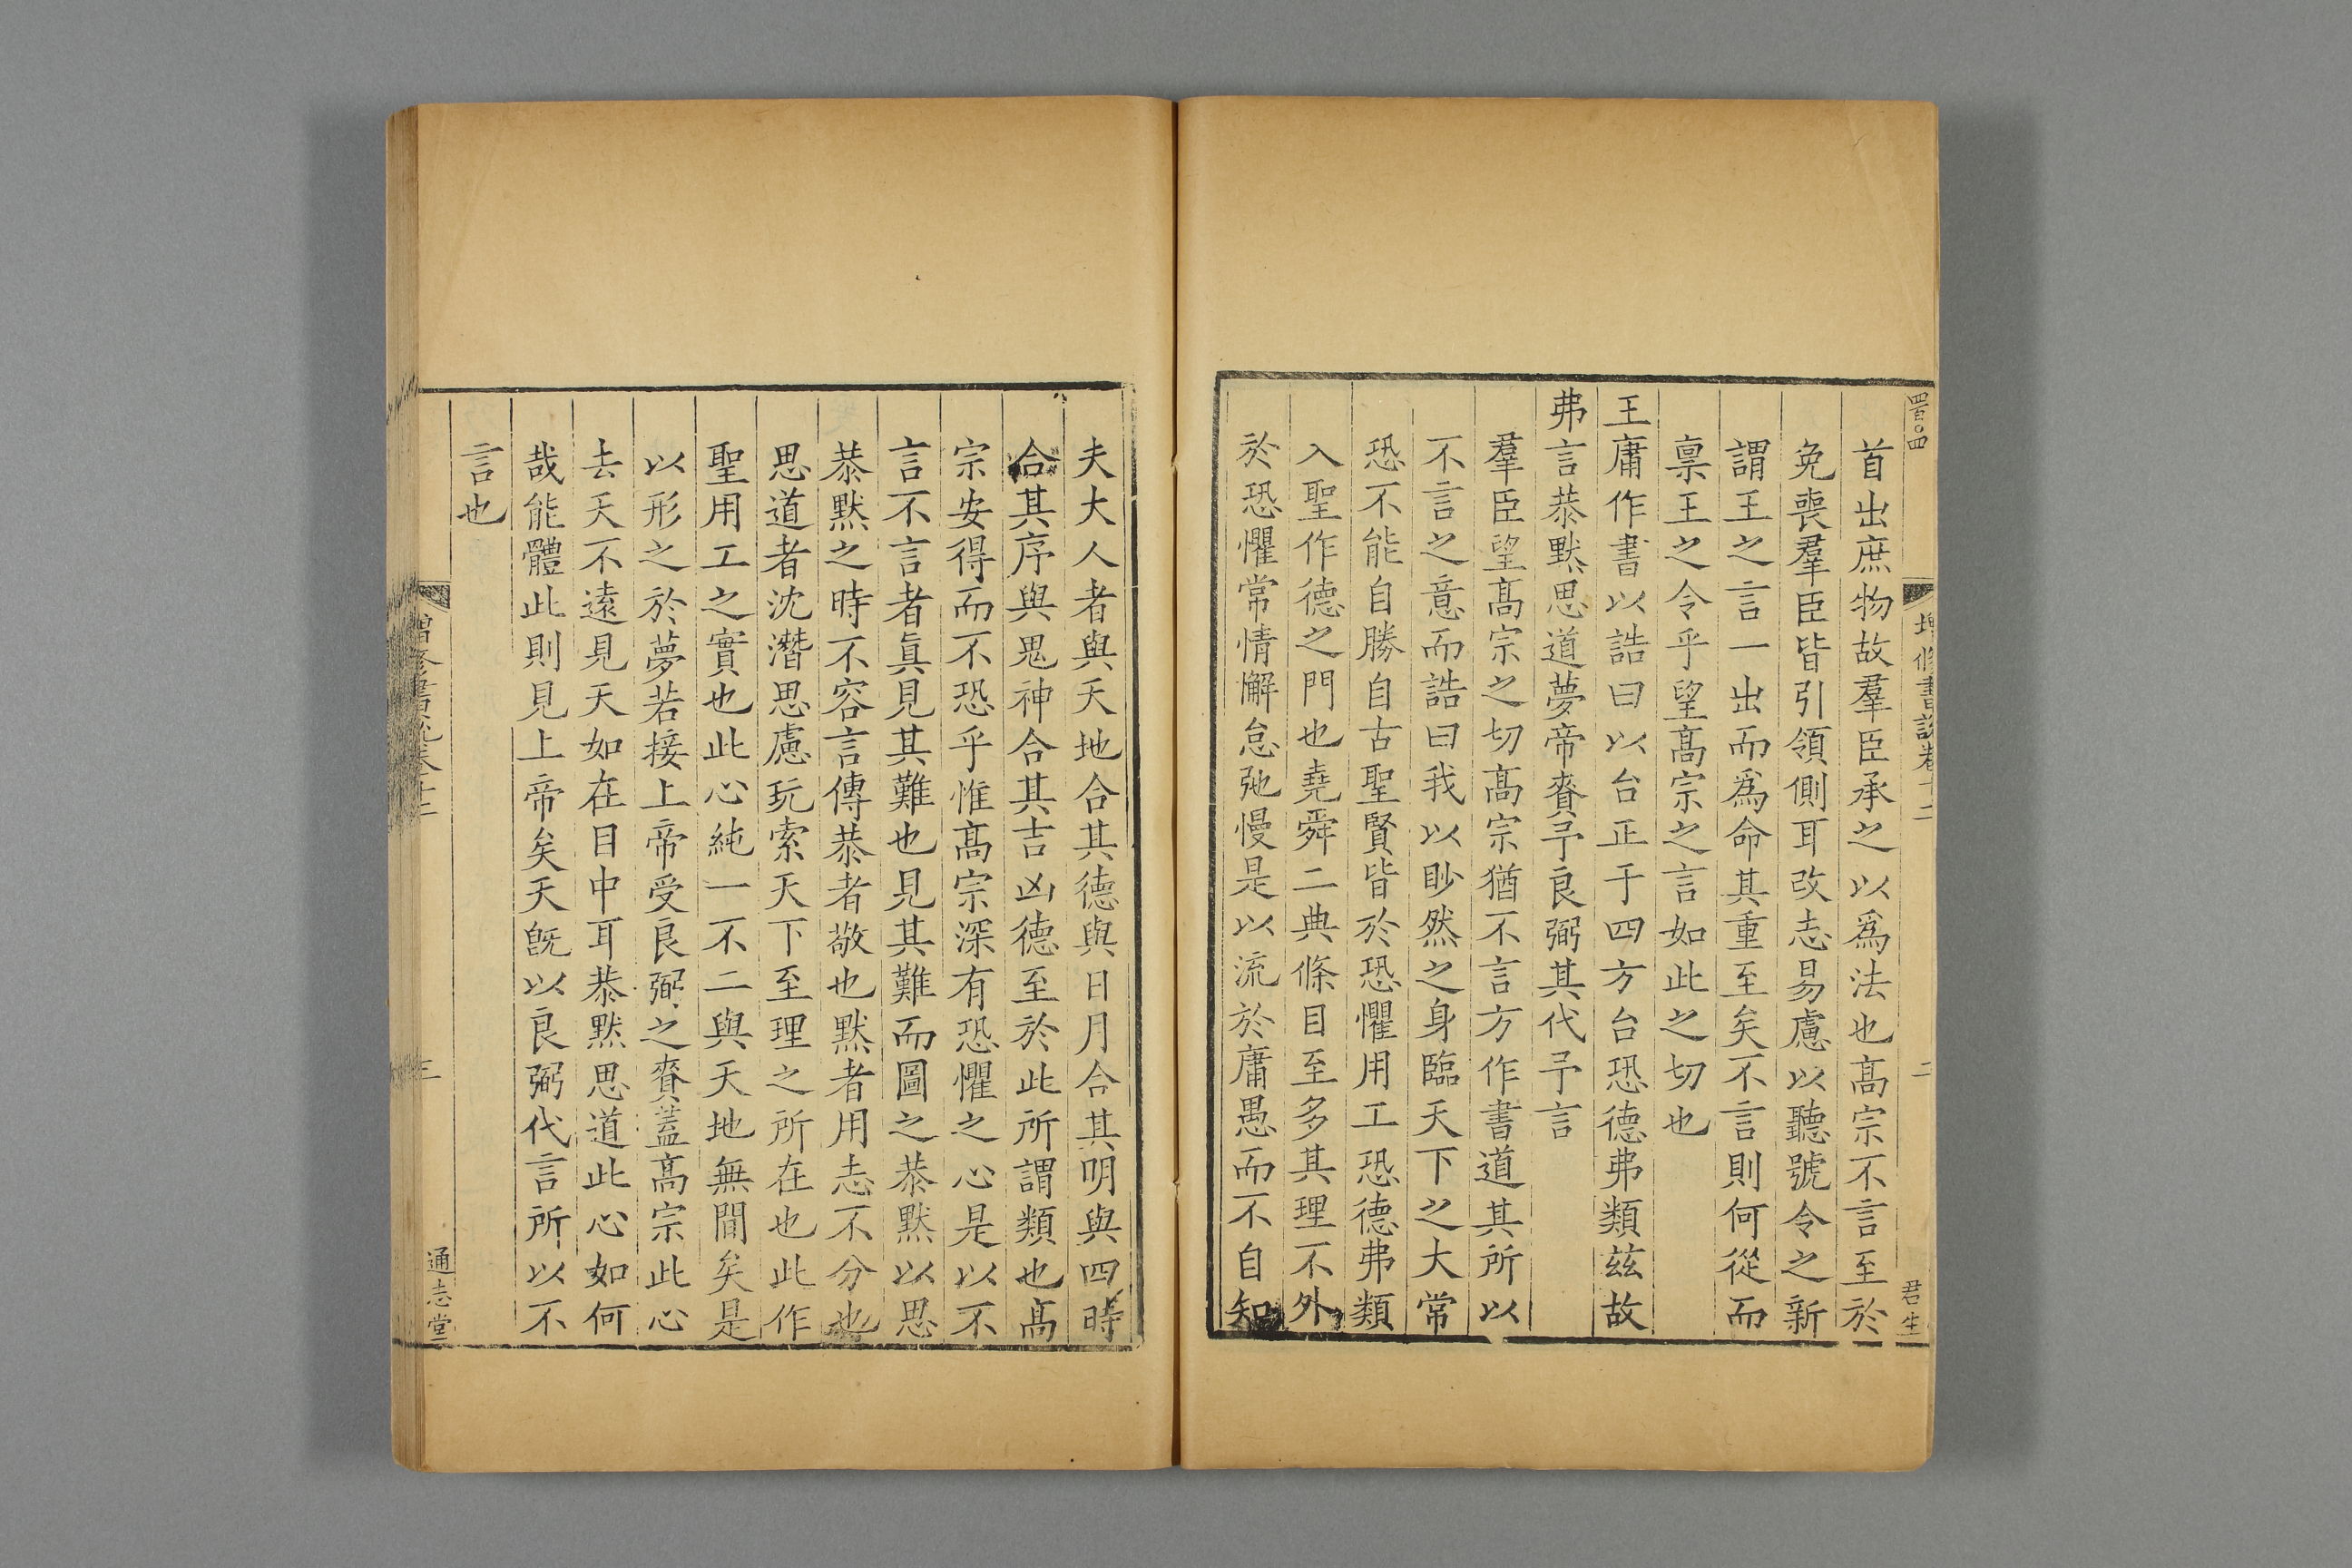 四百〇四
增修書說卷十二
二
君生
首出庶物故羣臣承之以爲法也髙宗不言至於
免喪羣臣皆引領側耳改志易慮以聽號令之新
謂王之言一出而爲命其重至矣不言則何從而
禀王之令乎望髙宗之言如此之切也
王庸作書以誥曰以台正于四方台恐德弗類茲故
弗言恭默思道夢帝賚予良弼其代予言
羣臣望髙宗之切髙宗猶不言方作書道其所以
不言之意而誥曰我以眇然之身臨天下之大常
恐不能自勝自古聖賢皆於恐懼用工恐德弗類
入聖作德之門也堯舜二典條目至多其理不外
於恐懼常情懈怠弛慢是以流於庸愚而不自知
夫大人者與天地合其德與日月合其明與四時
合其序與鬼神合其吉凶德至於此所謂類也髙
宗安得而不恐乎惟髙宗深有恐懼之心是以不
言不言者眞見其難也見其難而圖之恭默以思
恭默之時不容言傳恭者敬也默者用志不分也
思道者沈潛思慮玩索天下至理之所在也此作
聖用工之實也此心純一不二與天地無間矣是
以形之於夢若接上帝受良弼之賚蓋髙宗此心
去天不遠見天如在目中耳恭默思道此心如何
哉能體此則見上帝矣天旣以良弼代言所以不
言也
增修書說卷十二
三
通志堂